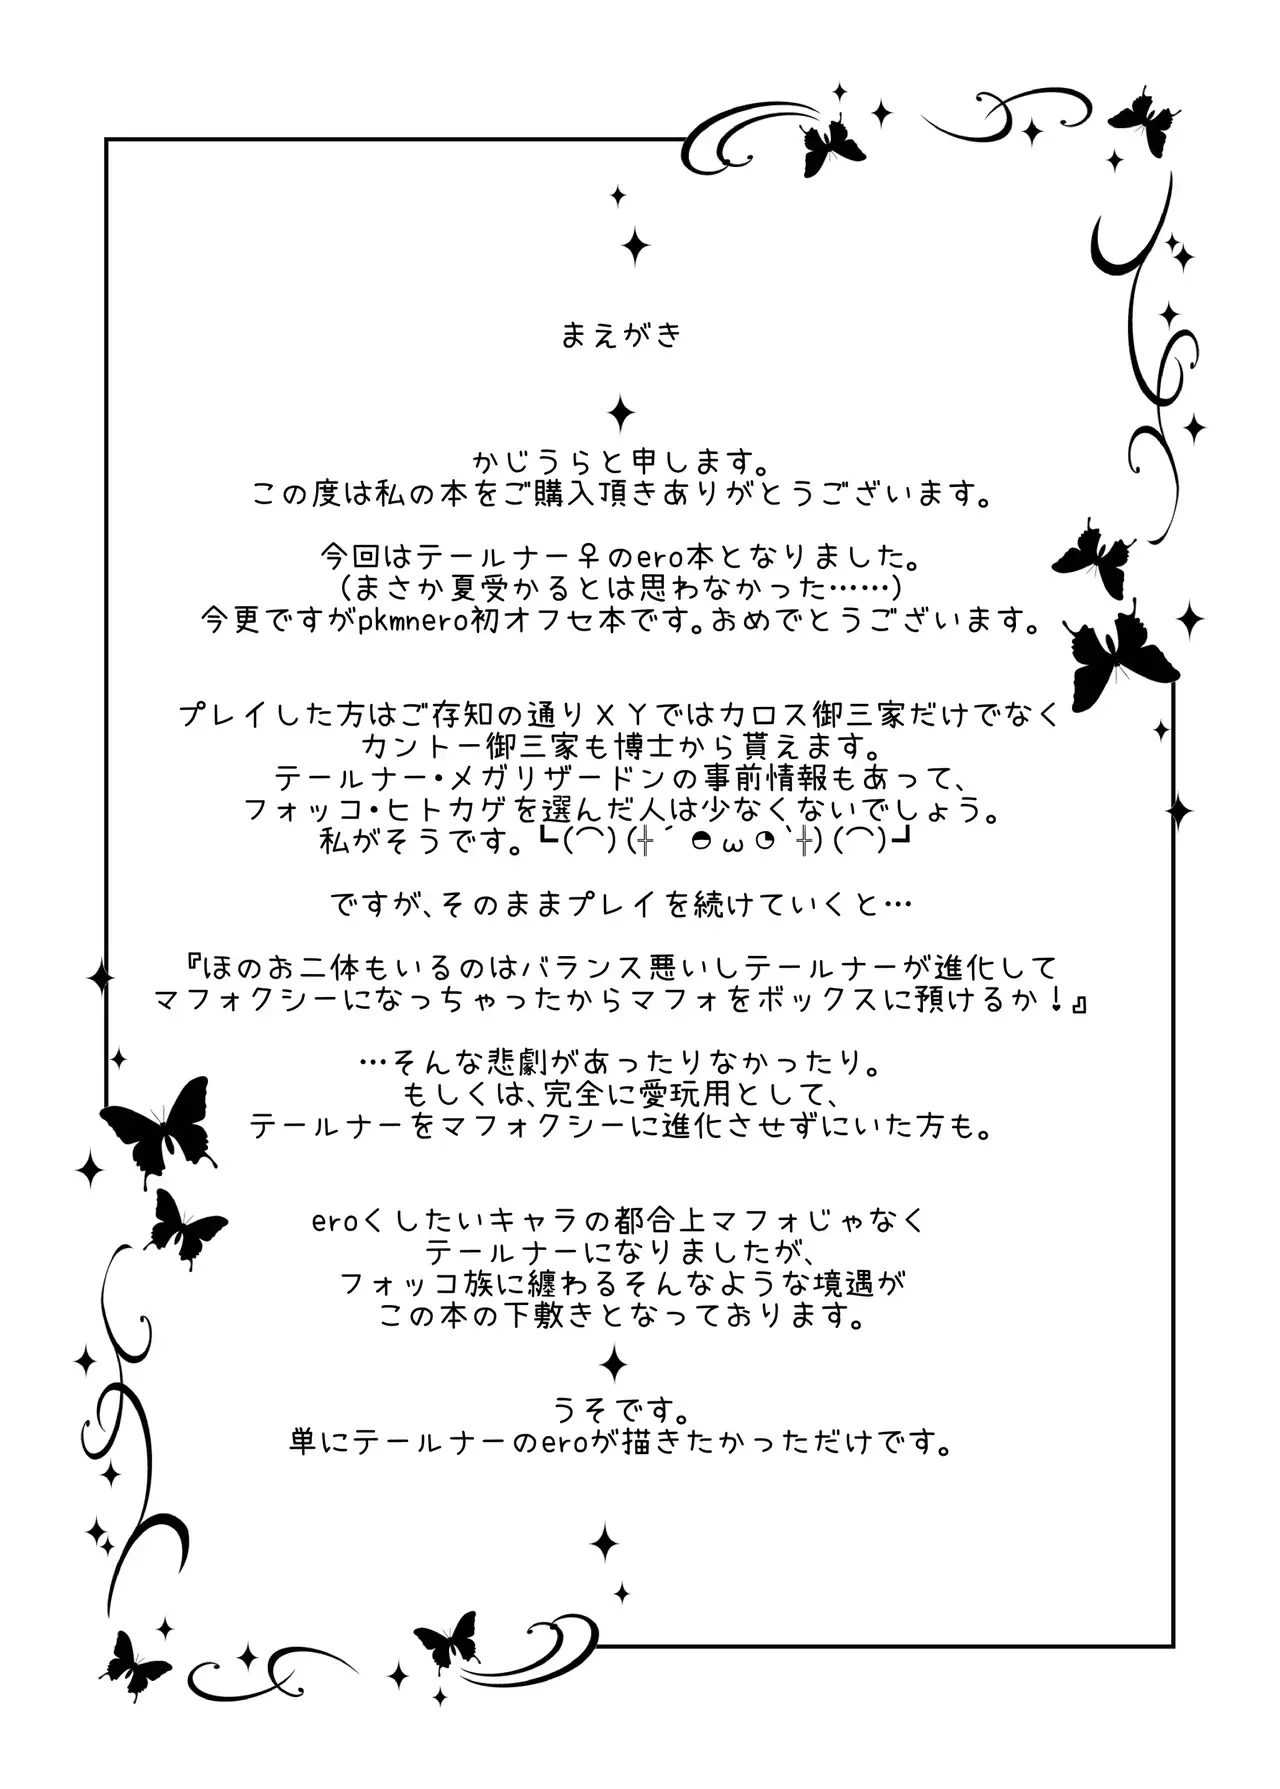 まえがき
かじうらと申します。
この度は私の本をご購入頂きありがとうございます。
今回はテールナー♀のero本となりました。
(まさか夏受かるとは思わなかった……)
今更ですがpkmnero初オフセ本です。おめでとうございます。
プレイした方はご存知の通りＸＹではカロス御三家だけでなく
カントー御三家も博士から貰えます。
テールナー・メガリザードンの事前情報もあって、
フォッコ・ヒトカゲを選んだ人は少なくないでしょう。
私がそうです。┗(⌒)(╬´◓ω◔`╬)(⌒)┛
ですが、そのままプレイを続けていくと…
『ほのお二体もいるのはバランス悪いしテールナーが進化して
マフォクシーになっちゃったからマフォをボックスに預けるか！』
…そんな悲劇があったりなかったり。
もしくは、完全に愛玩用として、
テールナーをマフォクシーに進化させずにいた方も。
eroくしたいキャラの都合上マフォじゃなく
テールナーになりましたが、
フォッコ族に纏わるそんなような境遇が
この本の下敷きとなっております。
うそです。
単にテールナーのeroが描きたかっただけです。